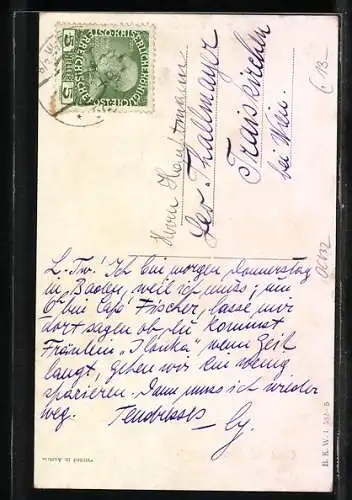 KAIS. KÖN. ÖSTERREICHISCHE POST
5 HELLER 5
Herrn Hauptmann
Thallmayer
Traiskirchen
bei Wien.
L. Tw.! Ich bin morgen Donnerstag
in Baden, weil ich muss; um
6h bin Café Fischer, lasse mir
dort sagen ob du kommst.
Fräulein „Ilonka" wenn Zeit
langt, gehen wir ein wenig
spazieren. Dann muss ich wieder
weg. Tendresses
Printed in Austria
B. K. W. I.